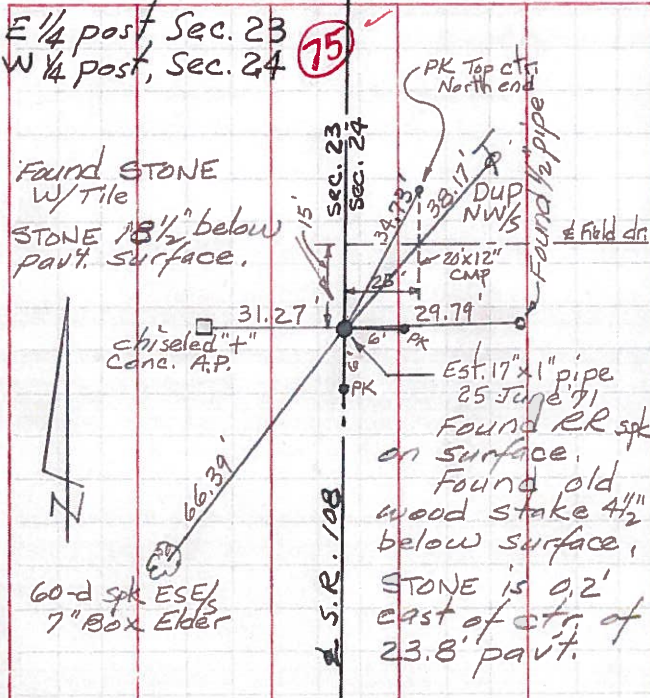 E 1/4 post Sec. 23
W 1/4 post, Sec. 24
75
PK Top ctr.
North end
sec. 23
sec. 24
Found STONE
W/Tile
STONE 18 1/2" below
pav't. surface.
15'
34.73'
38.17'
DUP
NW/s
Found 1/2" pipe
℄ Field dr.
20'x12"
CMP
31.27'
29.79'
chiseled "+"
Conc. A.P.
6'
PK
6'
PK
Est. 17" x 1" pipe
25 June '71
Found RR spk
on surface.
Found old
wood stake 4 1/2"
below surface.
STONE is 0.2'
east of ctr of
23.8' pav't.
66.39'
N
60-d spk ESE/s
7" Box Elder
℄ S.R. 108